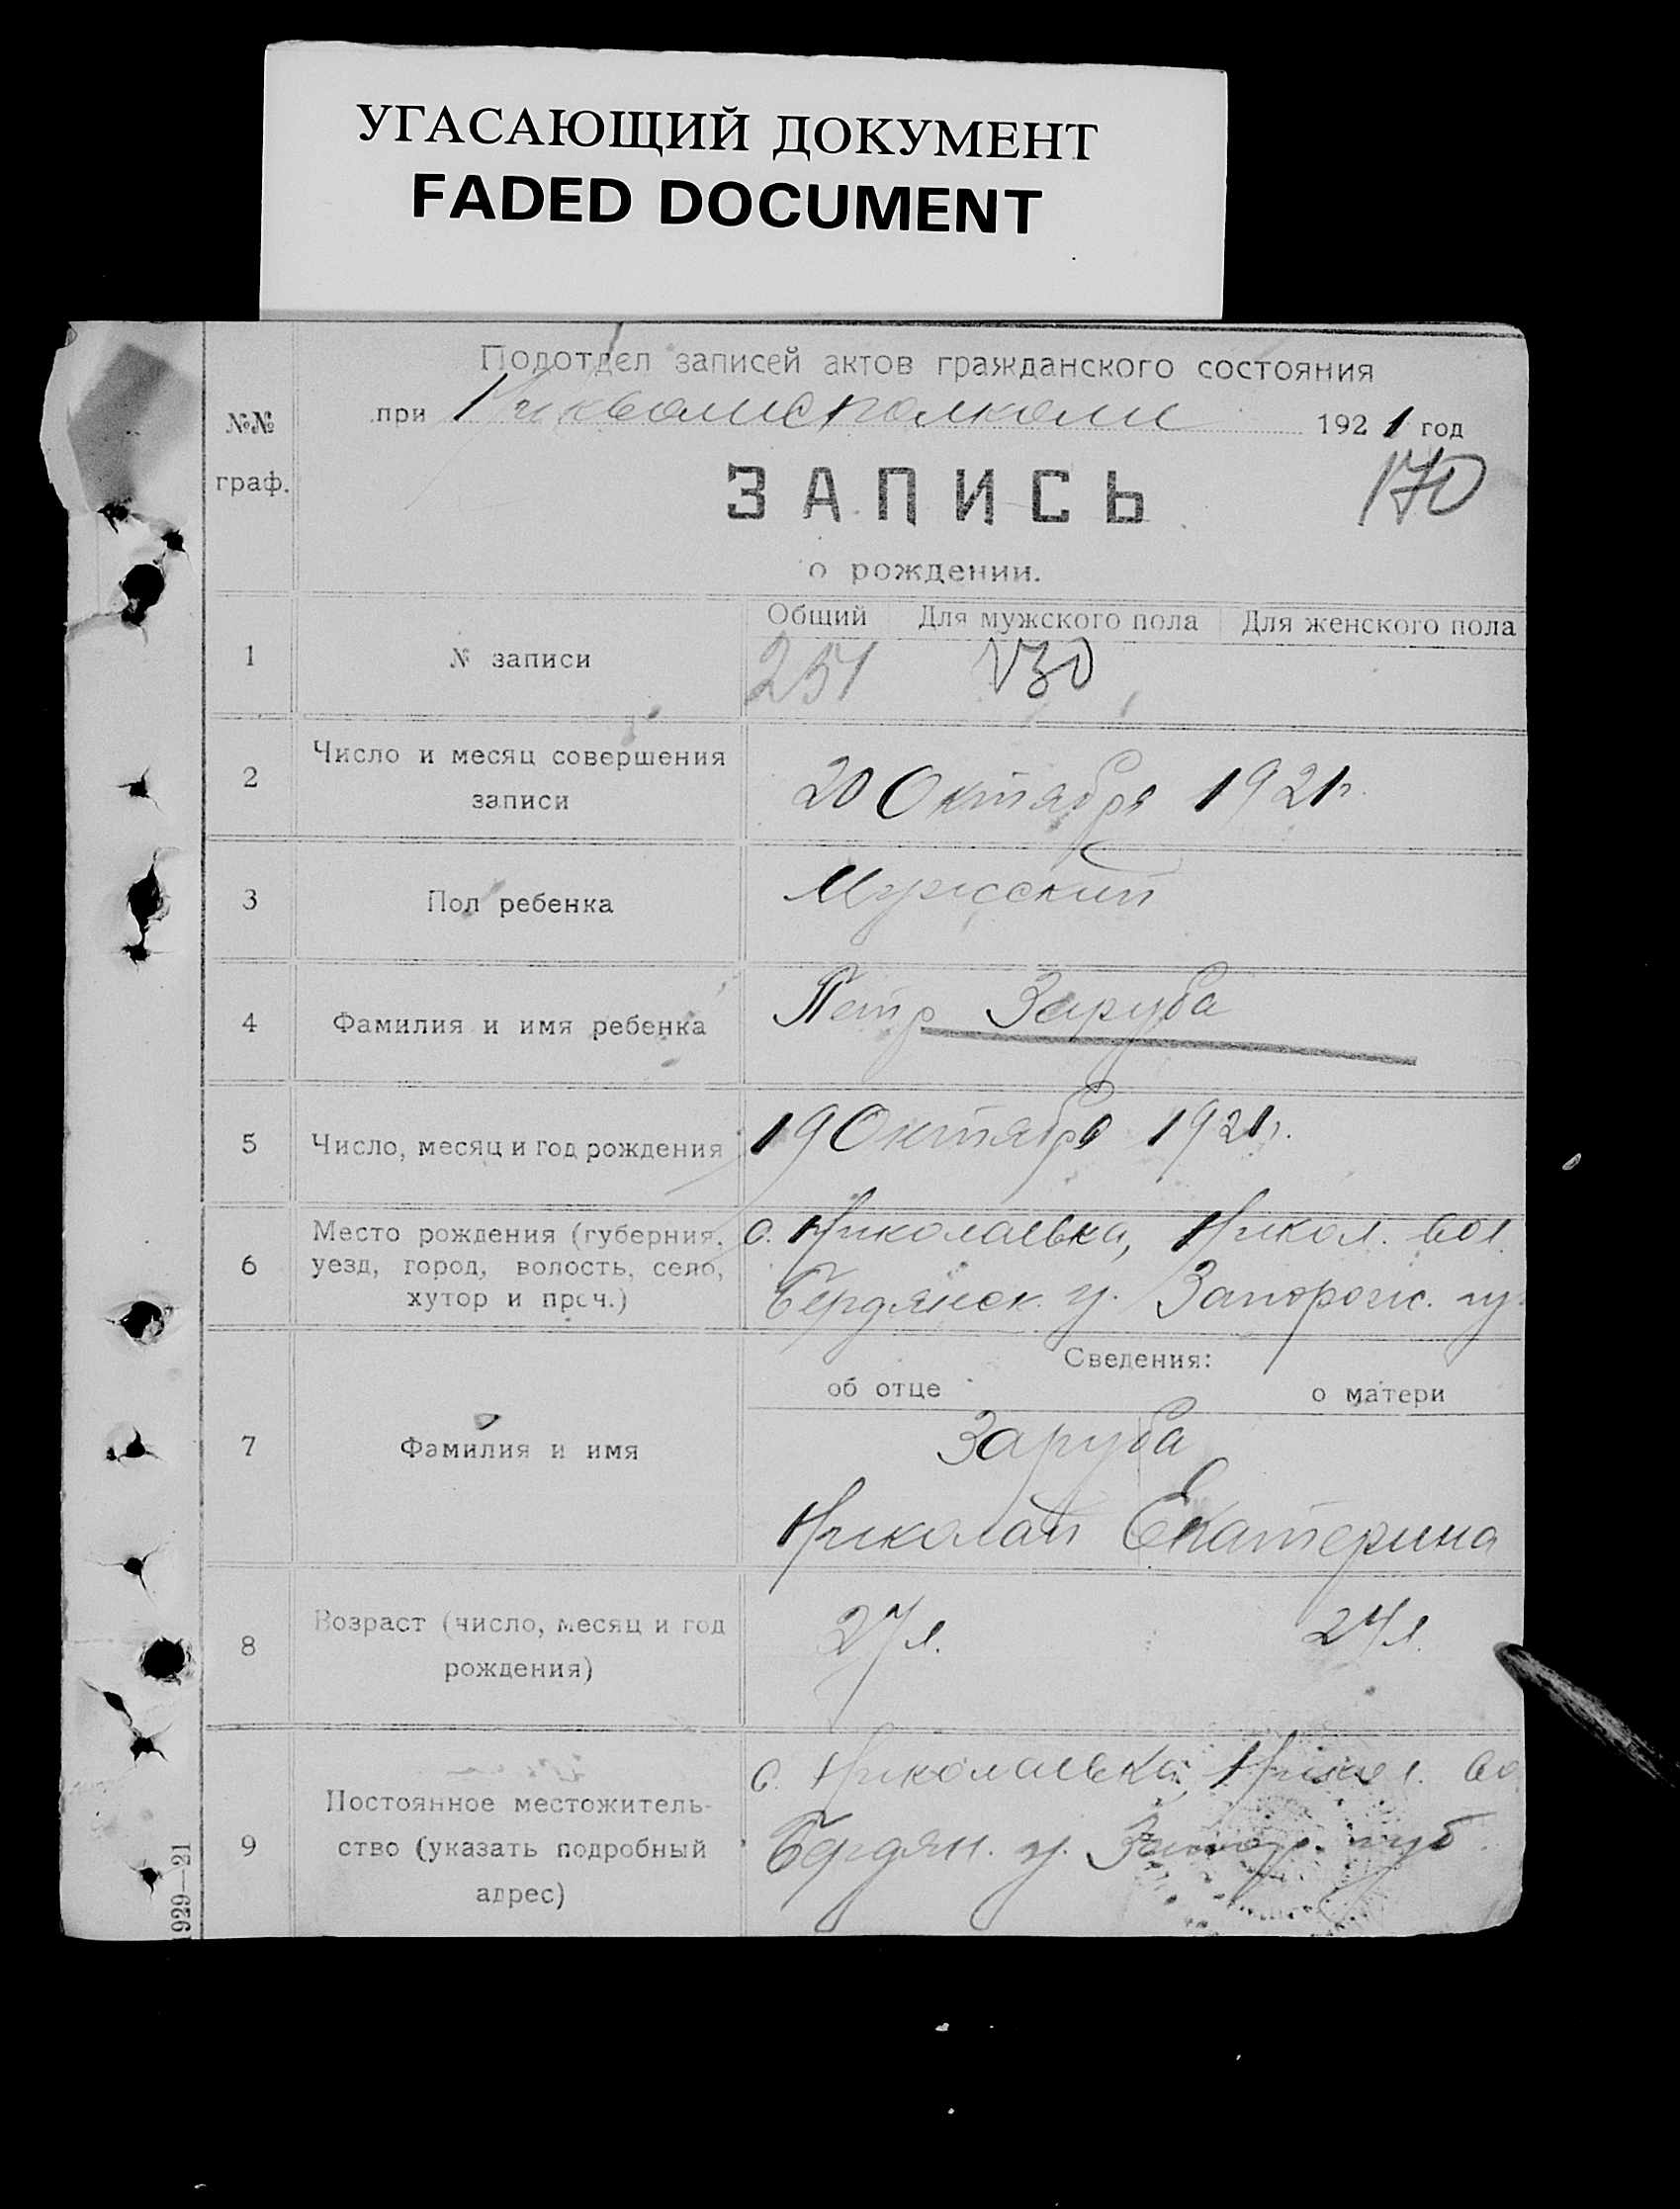 УГАСАЮЩИЙ ДОКУМЕНТ
FADED DOCUMENT
Подотдел записей актов гражданского состояния
при 1921 год
№№
граф.
170
ЗАПИСЬ
о рождении.
Общий Для мужского пола Для женского пола
1 № записи 251 130
2 Число и месяц совершения
записи
20 Октября 1921г.
3 Пол ребенка Мужской
4 Фамилия и имя ребенка Петр Заруба
5 Число, месяц и год рождения 19 Октября 1921г.
6 Место рождения (губерния,
уезд, город, волость, село,
хутор и проч.)
с. Николаевка, Никол. вол.
Бердянск. у. Запорож. гу
Сведения:
об отце о матери
7 Фамилия и имя
Заруба
Николай Екатерина
8 Возраст (число, месяц и год
рождения)
27 л. 24 л.
9 Постоянное местожитель-
ство (указать подробный
адрес)
с. Николаевка, Никол. во
Бердян. у. Запор. губ.
929—21